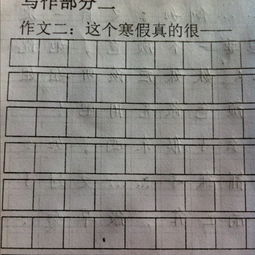 写作部分二
作文二：这个寒假真的很——